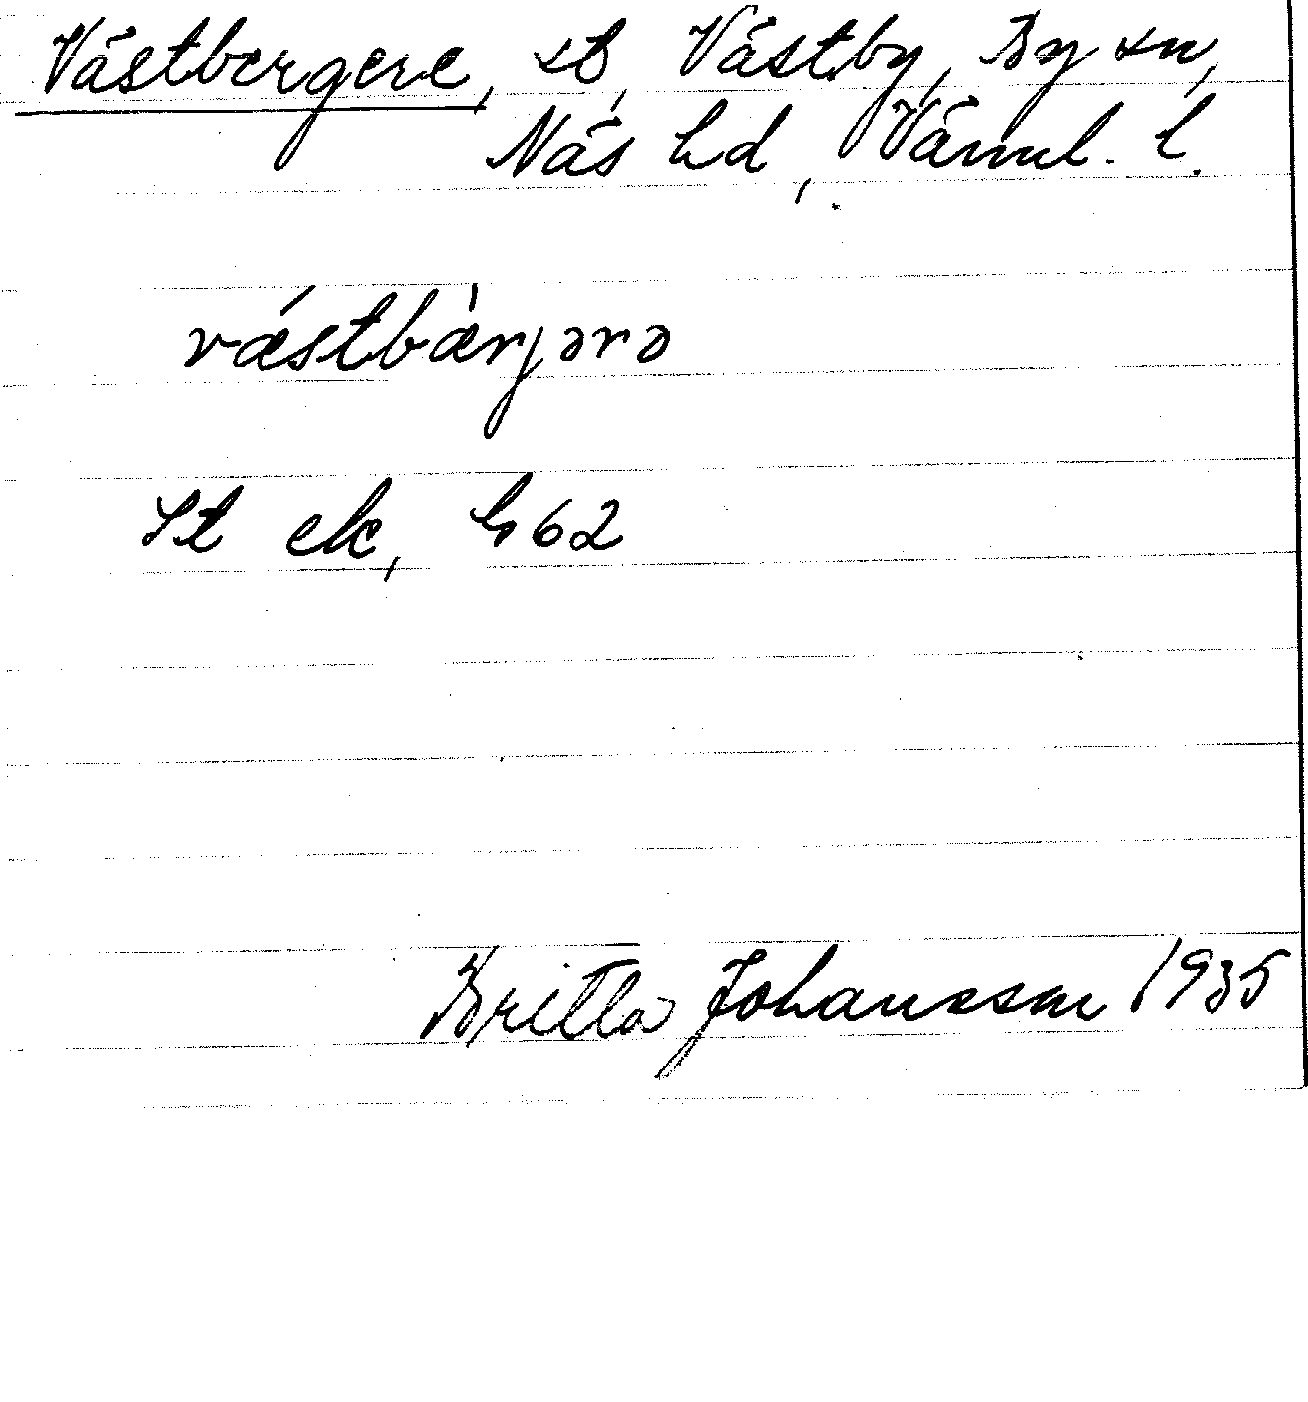 Västbergere, st, Västby, By sn,
Näs hd, Värml. l.
vǽstbæ̀rjərə
St ek, h 62
Britta Johansson 1935